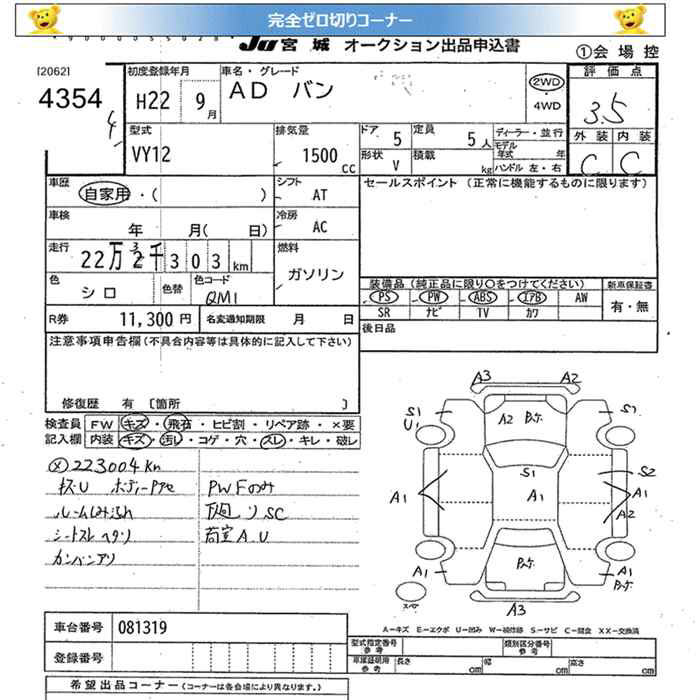 完全ゼロ切りコーナー
JU 宮城 オークション出品申込書
①会場控
[2062]
4354
4
初度登録年月
H22 9月
車名・グレード
AD バン
2WD
・
4WD
評価点
3.5
外装 内装
C C
型式
VY12
排気量
1500 CC
ドア 5
定員 5人
形状 V
積載 kg
ディーラー・並行
モデル年式 年
ハンドル 左・右
車歴
自家用・( )
シフト
AT
セールスポイント (正常に機能するものに限ります)
車検
年 月( 日)
冷房
AC
走行
22万 3 2千 303 km
燃料
ガソリン
色
シロ
色替
色コード
QM1
装備品(純正品に限り○をつけてください)
PS PW ABS エアB AW
SR ナビ TV カワ
新車保証書
有・無
R券 11,300円
名変通知期限 月 日
後日品
注意事項申告欄(不具合内容等は具体的に記入して下さい)
修復歴 有 [箇所 ]
検査員記入欄
FW キズ・飛石・ヒビ割・リペア跡・×要
内装 キズ・汚レ・コゲ・穴・スレ・キレ・破レ
223004km
キズU ボディーPアセ
PWFのみ
下廻りSC
シートスレ ヘタリ
荷室A.U
カンバンアリ
A3 A2
S1
U1
A2
S1
A1
A1
S2
A1
A2
A1
A1
A3
スペア
A-キズ E-エクボ U-凹み W-補修跡 S-サビ C-腐食 XX-交換済
車台番号 081319
登録番号
型式指定番号 参考
類別区分番号 参考
車庫証明用 参考
長さ cm 幅 cm 高さ cm
希望出品コーナー(コーナーは各会場により異なります。)